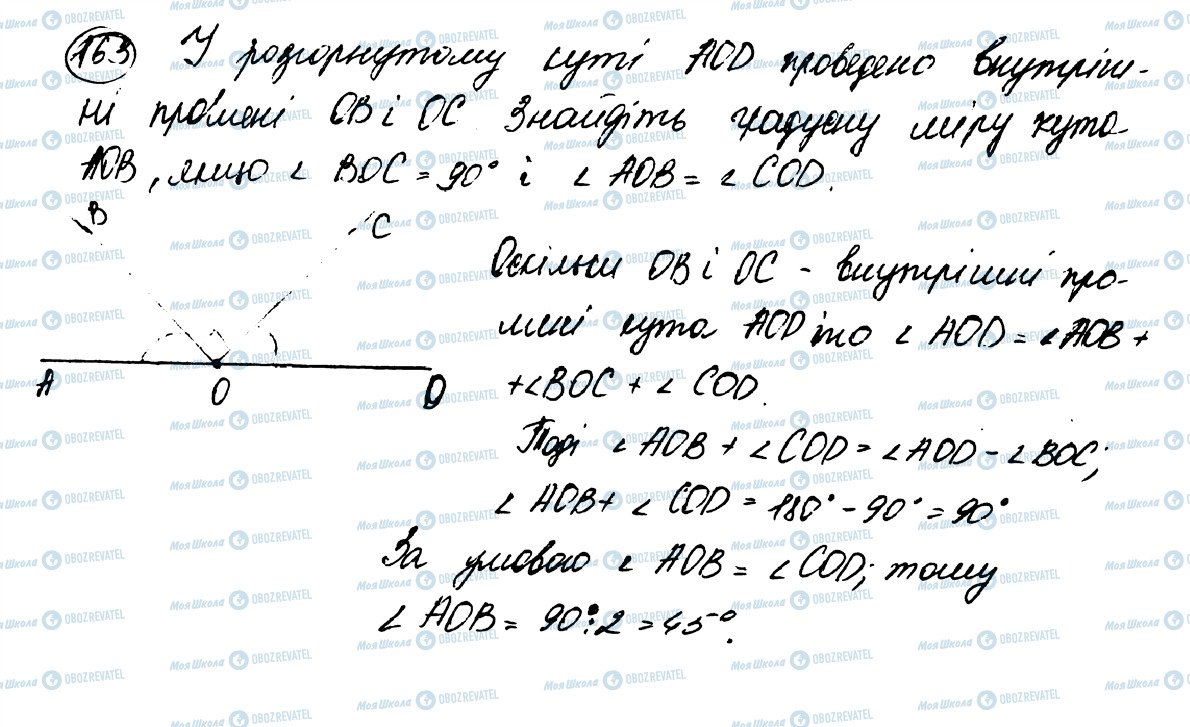 163 У розгорнутому куті AOD проведено внутріш-
ні промені OB і OC Знайдіть градусну міру кута
AOB, якщо ∠ BOC = 90° і ∠ AOB = ∠ COD.
B
C
A O D
Оскільки OB і OC - внутрішні про-
мені кута AOD то ∠ AOD = ∠AOB +
+∠BOC + ∠ COD.
Тоді ∠ AOB + ∠ COD = ∠AOD - ∠BOC;
∠ AOB + ∠ COD = 180° - 90° = 90°
За умовою ∠ AOB = ∠ COD; тому
∠ AOB = 90°:2 = 45°.